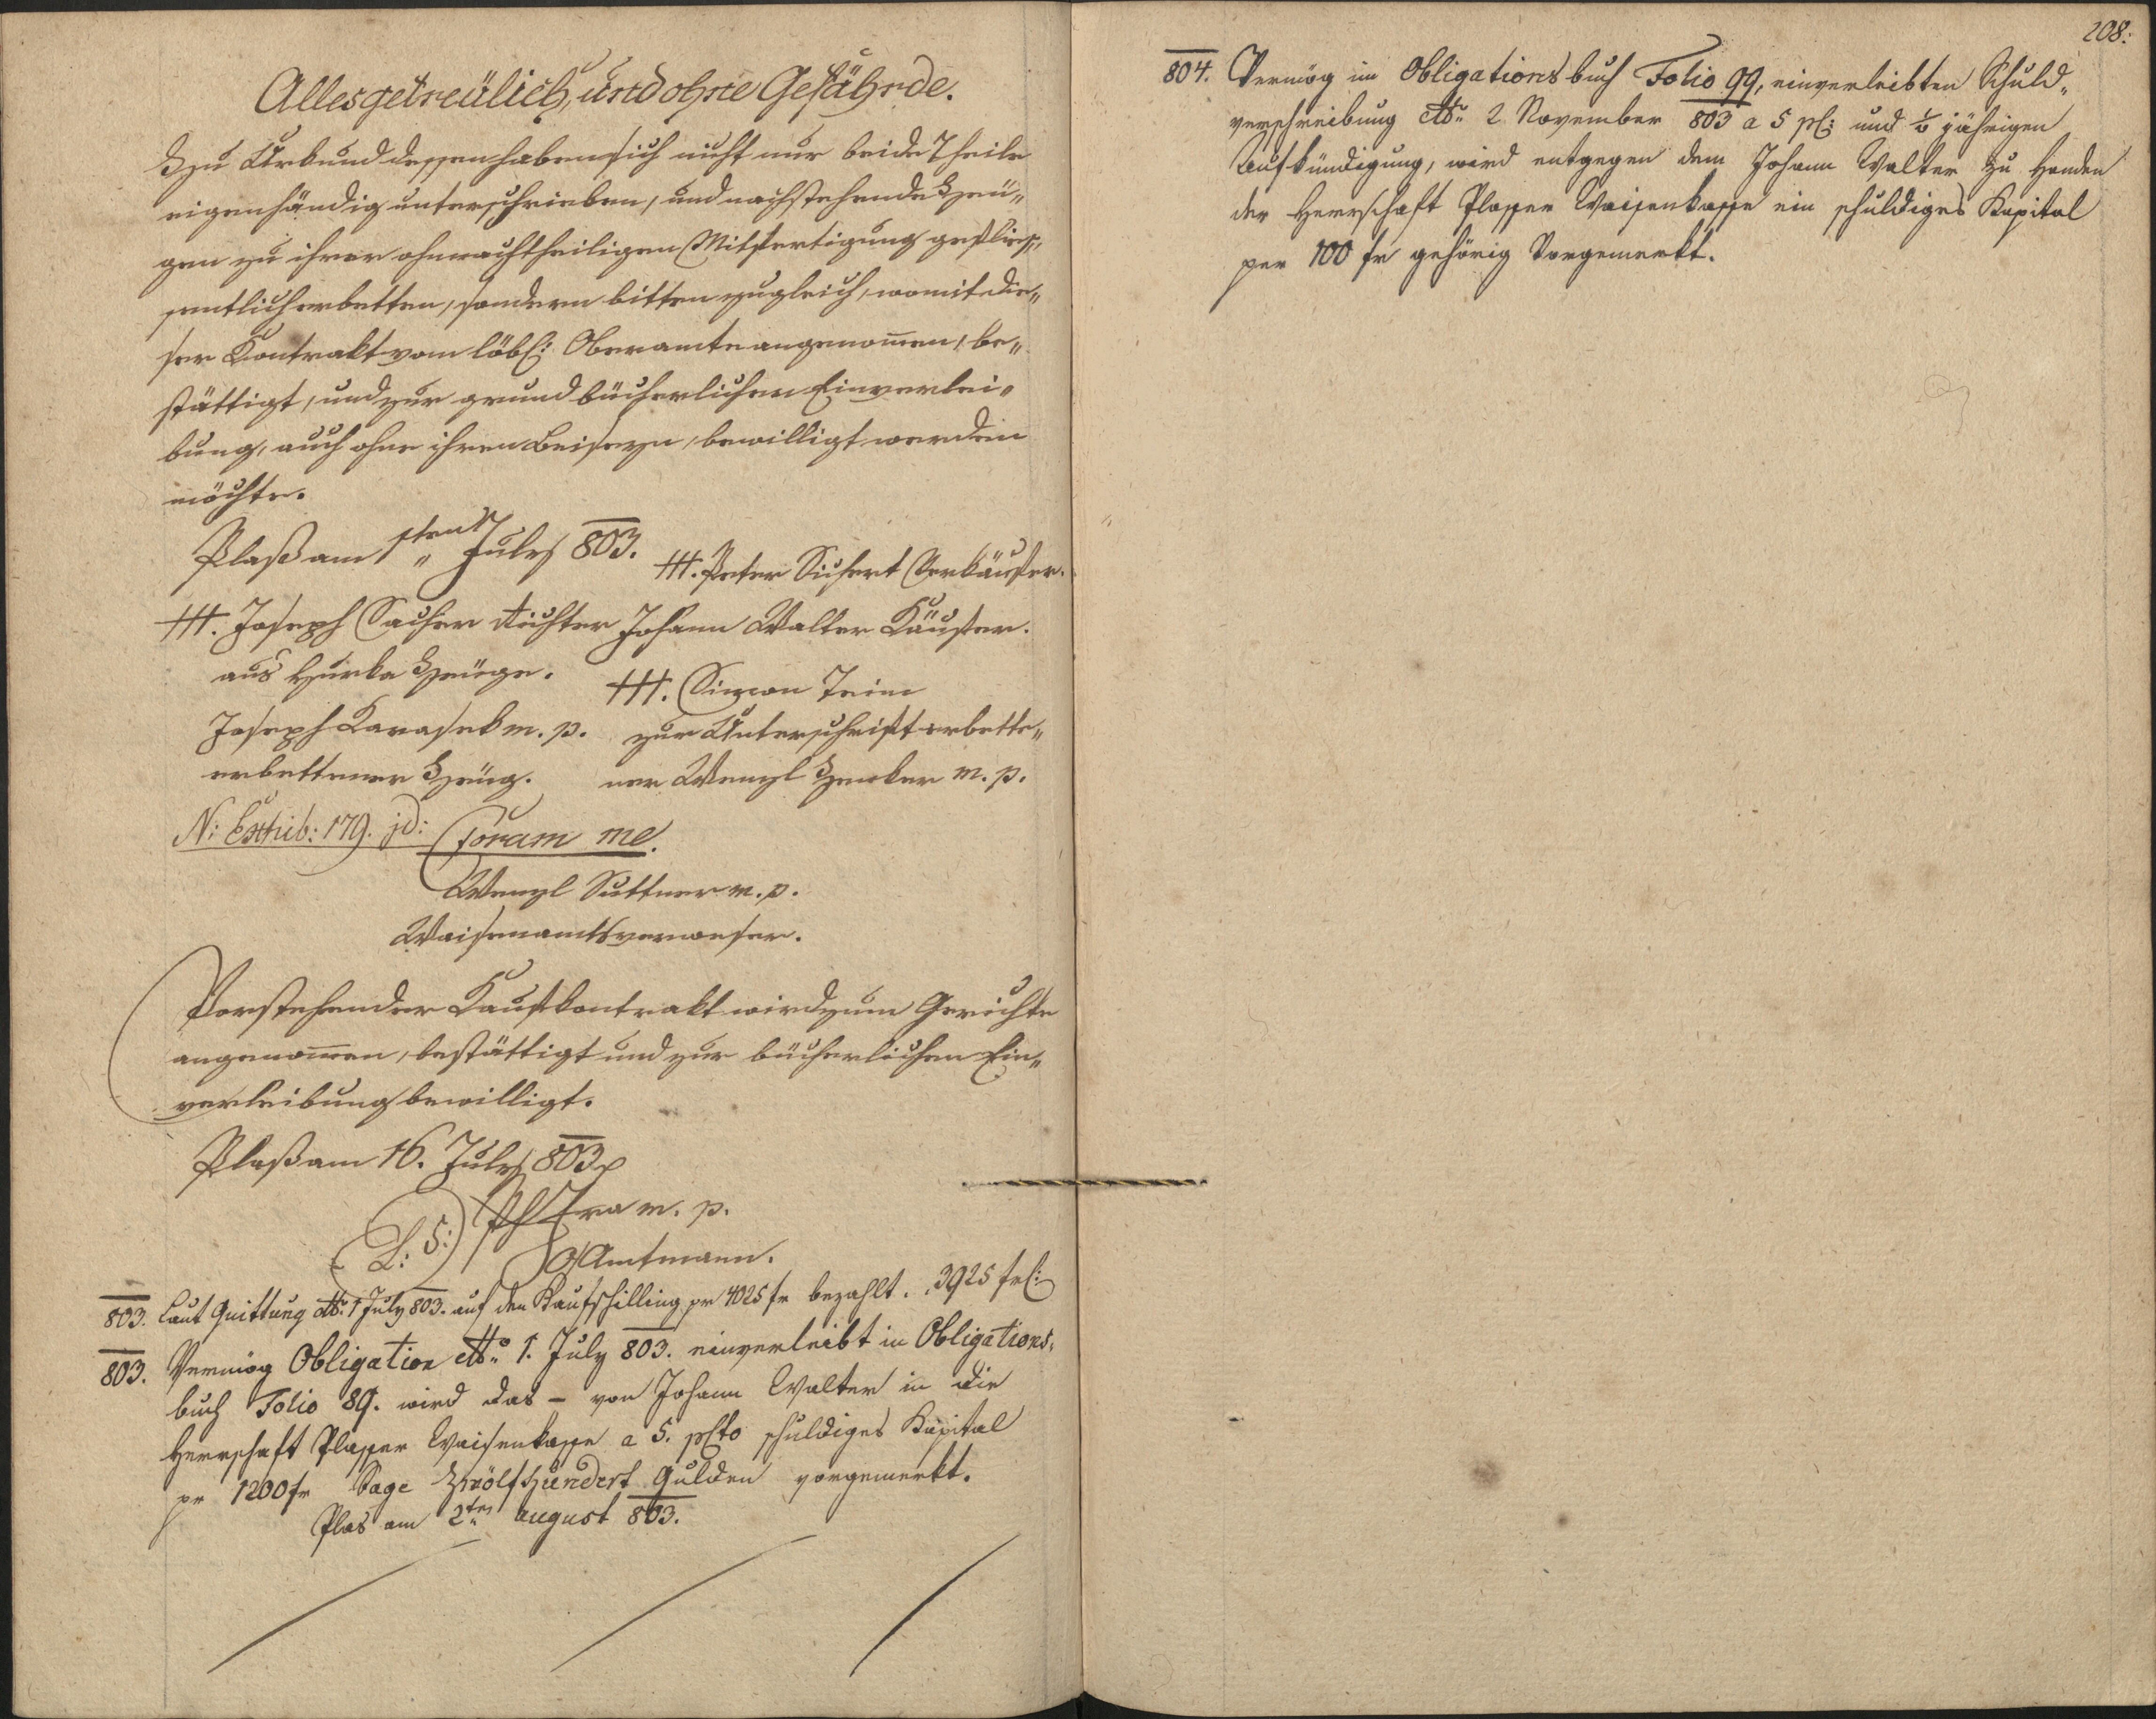 Alles getreülich, und ohne Gefährde.
Zu Urkund dessen haben sich nicht nur beide Theile
eigenhändig unterschrieben, und nachstehende Zeü„
gen zu ihrer ohnnachtheiligen Mitfertigung geflies„
sentlich erbetten, sondern bitten zugleich, womit die„
ser Kontrakt vom löbl: Oberamte angenom̅en, be„
stättigt, und zur grundbücherlichen Einverlei„
bung, auch ohne ihren Beiseyn, bewilligt werden
möchte.
Plaß am 1sten July 803.
+++. Peter Sichert Verkäufer.
+++. Joseph Sacher Richter
aus Hurka Zeüge.
Johann Walter Käufer.
+++. Simon Teim
Joseph Karasek m. p.
erbettener Zeüg.
zur Unterschrift erbette„
ner Wenzl Zenker m. p.
N: Exhib: 179. jd:
Coram me.
Wenzl Suttner m. p.
Waisenamtsverweser.
Vorstehender Kaufkontrakt wird zum Gerichte
angenom̅en, bestättigt und zur bücherlichen Ein„
verleibung bewilligt.
Plaß am 16. July 803
(L: S:)
m. p.
Amtmann.
803. Laut Quittung dtto 1 July 803. auf den Kaufschilling pr 4025 fr bezahlt. 3925 fr:
803. Vermög Obligation dtto 1. July 803. einverleibt in Obligations„
buch Folio 89. wird das – von Johann Walter in die
Herrschaft Plasser Waisenkasse a 5. pcto schuldiges Kapital
pr 1200 fr Sage Zwölfhundert Gulden vorgemerkt.
Plas am 2ten august 803.
208.
804. Vermög im Obligationsbuch Folio 99, einverleibten Schuld„
verschreibung dtto 2 November 803 a 5 pc: und ½ jährigen
Aufkündigung, wird entgegen dem Johann Walter zu Handen
der Herrschaft Plasser Waisenkasse ein schuldiges Kapital
per 100 fr gehörig Vorgemerkt.